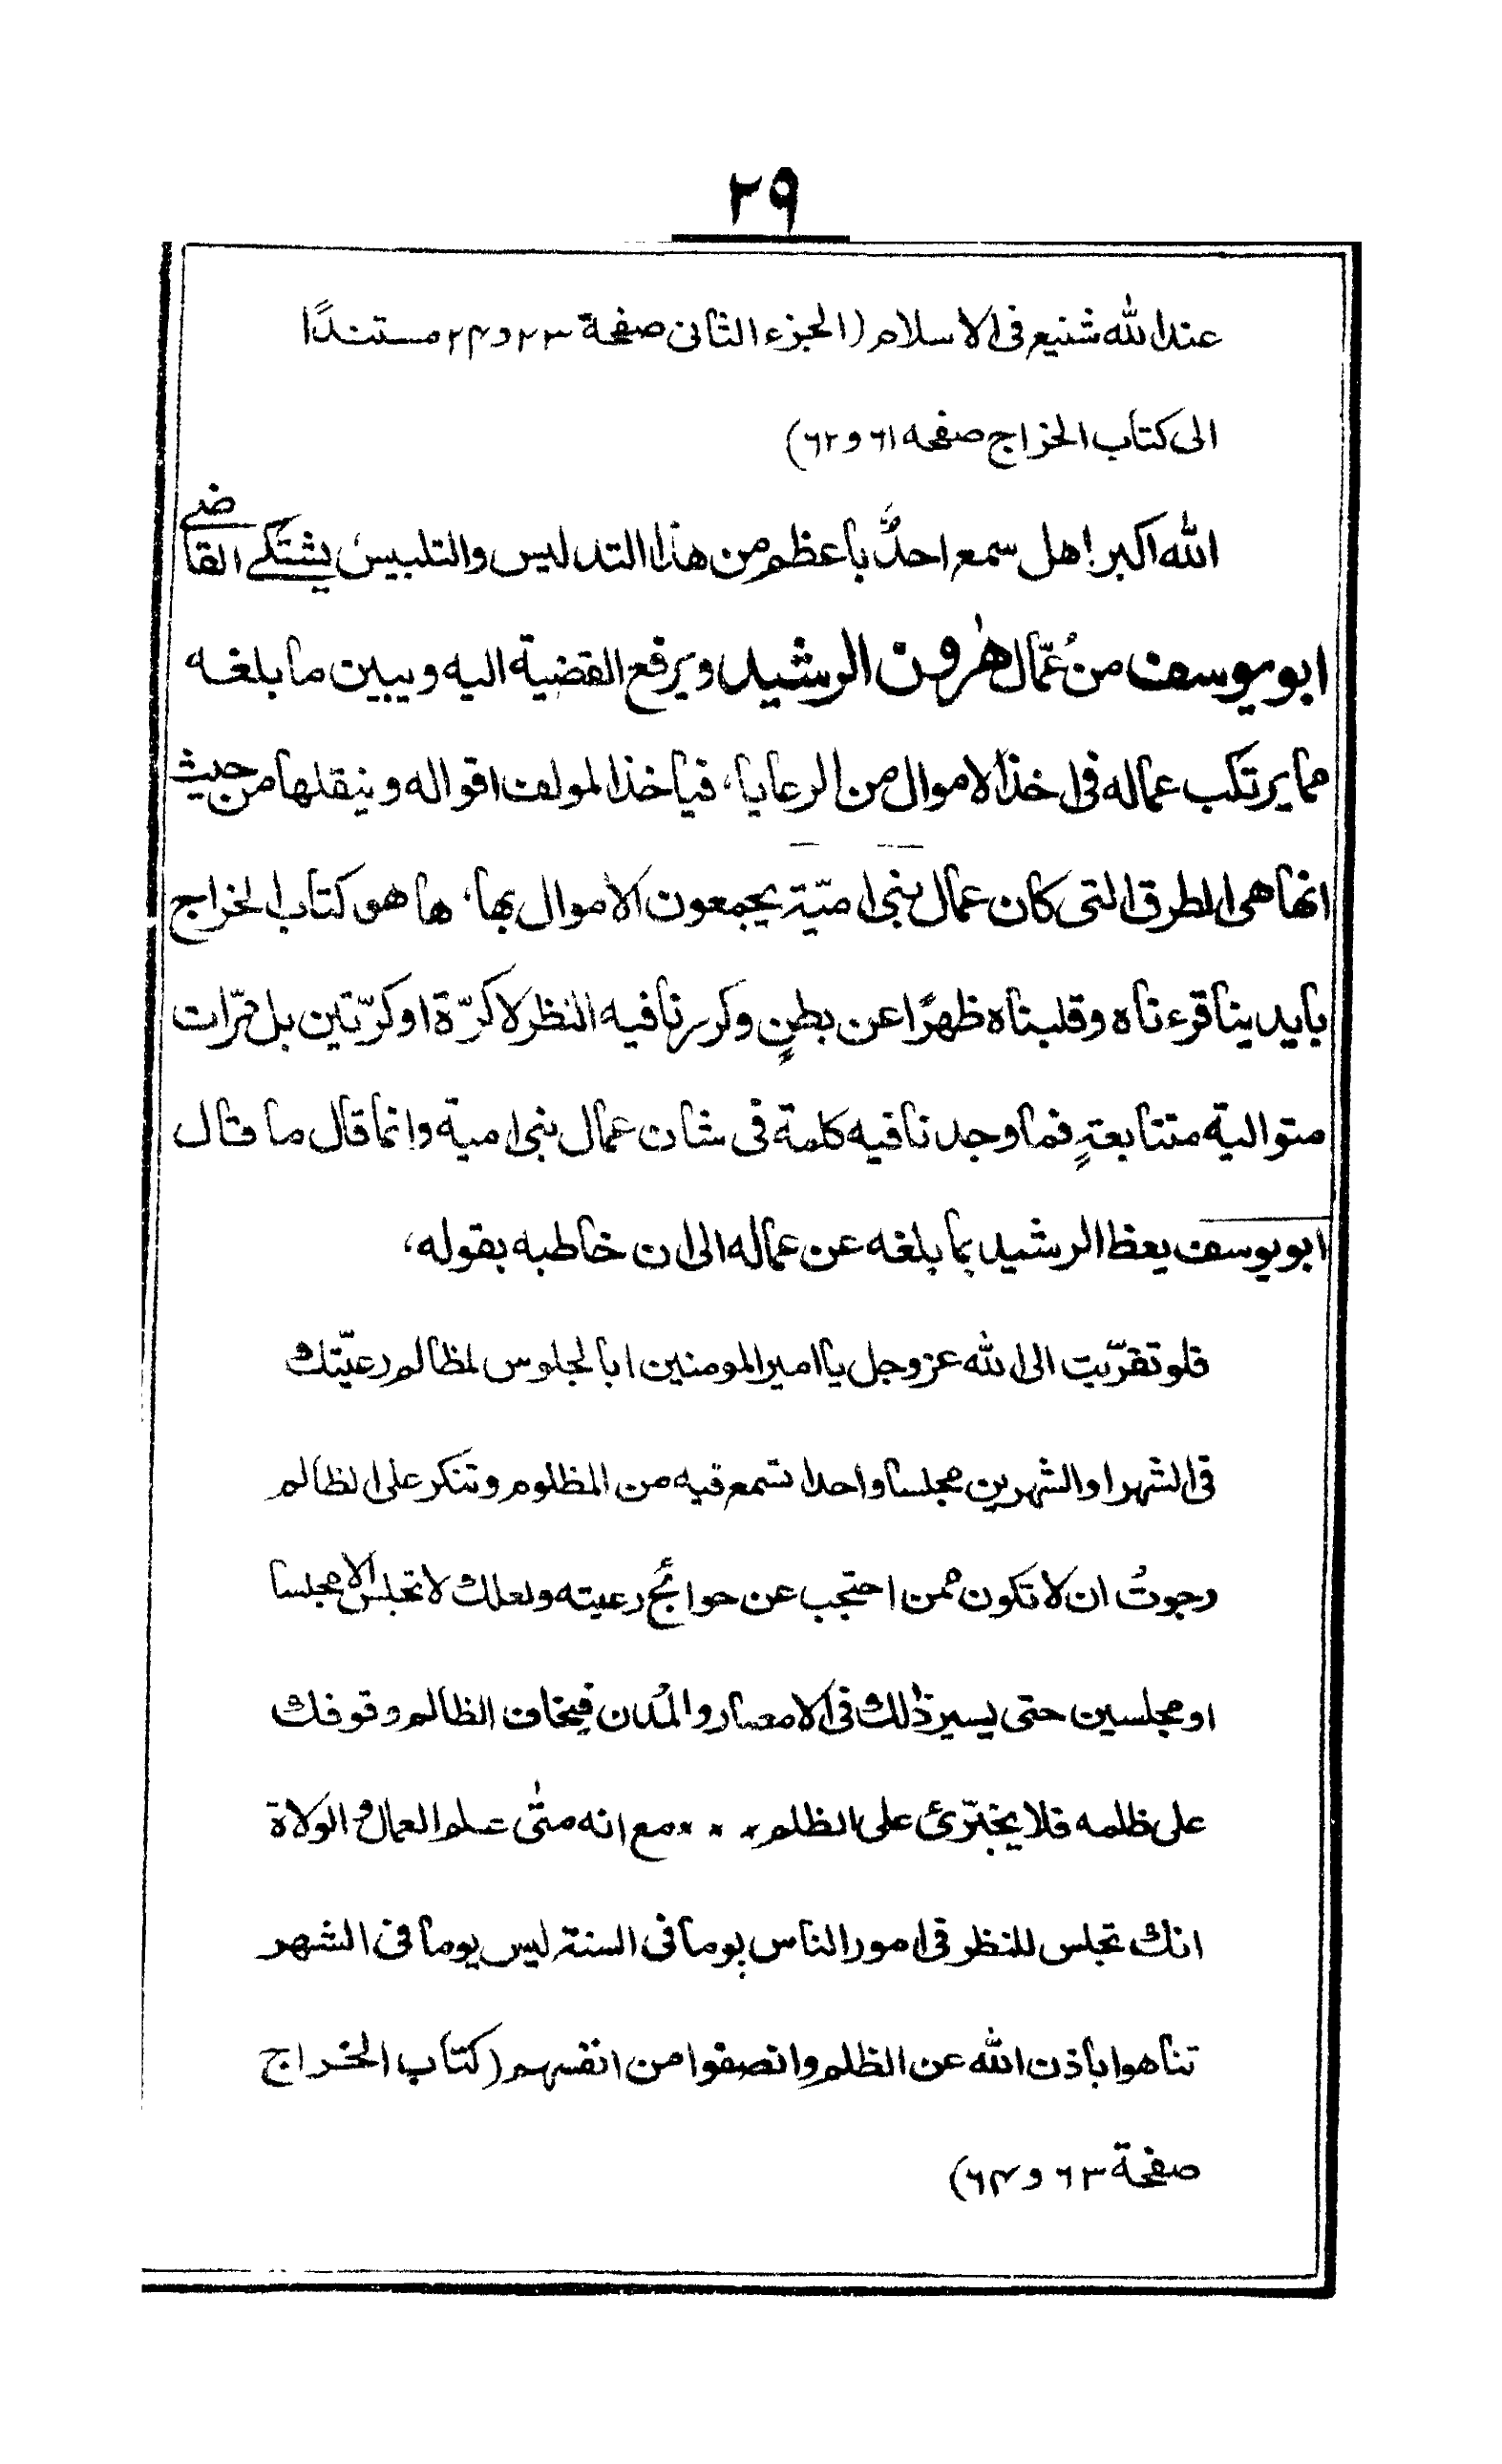 ٢٩
عند الله شنيع فى الاسلام (الجزء الثانى صفحة ٢٣ و٢٤ مستندًا
الى كتاب الخراج صفحه ٦١ و ٦٢)
الله اكبر! هل سمع احدٌ باعظم من هذا التدليس والتلبيس، يشتكى القاضى
ابو يوسف من عُمّال هٰرون الرشيد ويرفع القضية اليه ويبين ما بلغه
مما يرتكب عماله فى اخذ الاموال من الرعايا، فياخذ المولف اقواله وينقلها من حيث
انها هى الطرق التى كان عمال بنى اميّة يجمعون الاموال بها، ها هو كتاب الخراج
بايدينا قرءناه وقلبناه ظهرًا عن بطنٍ وكررنا فيه النظر لا كرّة او كرّتين بل مرّات
متوالية متتابعةٍ فما وجدنا فيه كلمة فى شان عمال بنى امية وانما قال ما قال
ابو يوسف يعظ الرشيد بما بلغه عن عماله الى ان خاطبه بقوله،
فلو تقرّبت الى الله عز وجل يا امير المومنين ابالجلوس لمظالم رعيّتك
فى الشهر او الشهرين مجلسا واحدا تسمع فيه من المظلوم وتنكر على الظالم
رجوتُ ان لا تكون ممن احتجب عن حوائج رعيته ولعلك لا تجلس الا مجلسا
او مجلسين حتى يسير ذٰلك فى الامصار والمُدن فيخاف الظالم وقوفك
على ظلمه فلا يجترّئ على الظلم * * * مع انه متىٰ علم العمال و الولاة
انك تجلس للنظر فى امور الناس يوما فى السنة ليس يوما فى الشهر
تناهوا باذن الله عن الظلم وانصفوا من انفسهم (كتاب الخراج
صفحة ٦٣ و ٦٤)